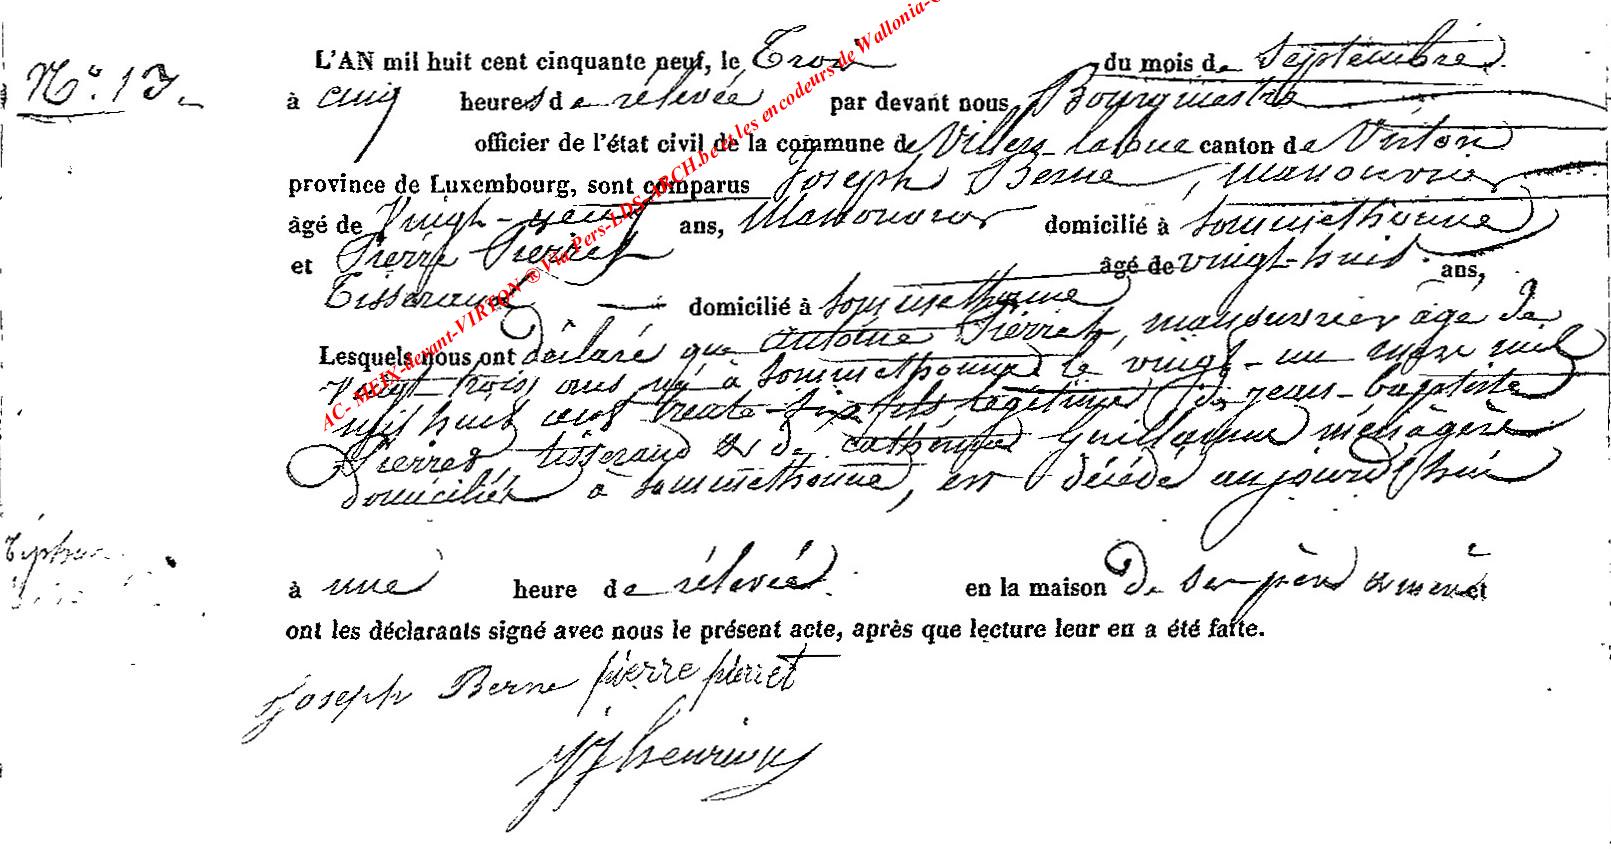 N° 13
L'AN mil huit cent cinquante neuf, le Trois du mois de Septembre
à cinq heures de rélevée par devant nous Bourgmestre
officier de l'état civil de la commune de Villers-laloue canton de Virton
province de Luxembourg, sont comparus Joseph Berne, Manouvrier
âgé de Vingt-neuf ans, Manouvrier domicilié à Sommethonne
et Pierre Pierret âgé de vingt-huit ans,
Tisserand domicilié à Sommethonne
Lesquels nous ont déclaré que Antoine Pierret, manouvrier âgé de
Vingt trois ans né à Sommethonne le vingt-un mars mil
huit cent trente-six fils légitime de jean-baptiste
Pierret tisserand & de cathérine Guillaume ménagère
domiciliés à Sommethonne, est décédé aujourd'hui
à une heure de rélevée en la maison de ses père & mère et
ont les déclarants signé avec nous le présent acte, après que lecture leur en a été faite.
Joseph Berne pierre pierret
AC- MEIX-devant-VIRTON ® Via Pers-LDS-ARCH.be et les encodeurs de Wallonia-